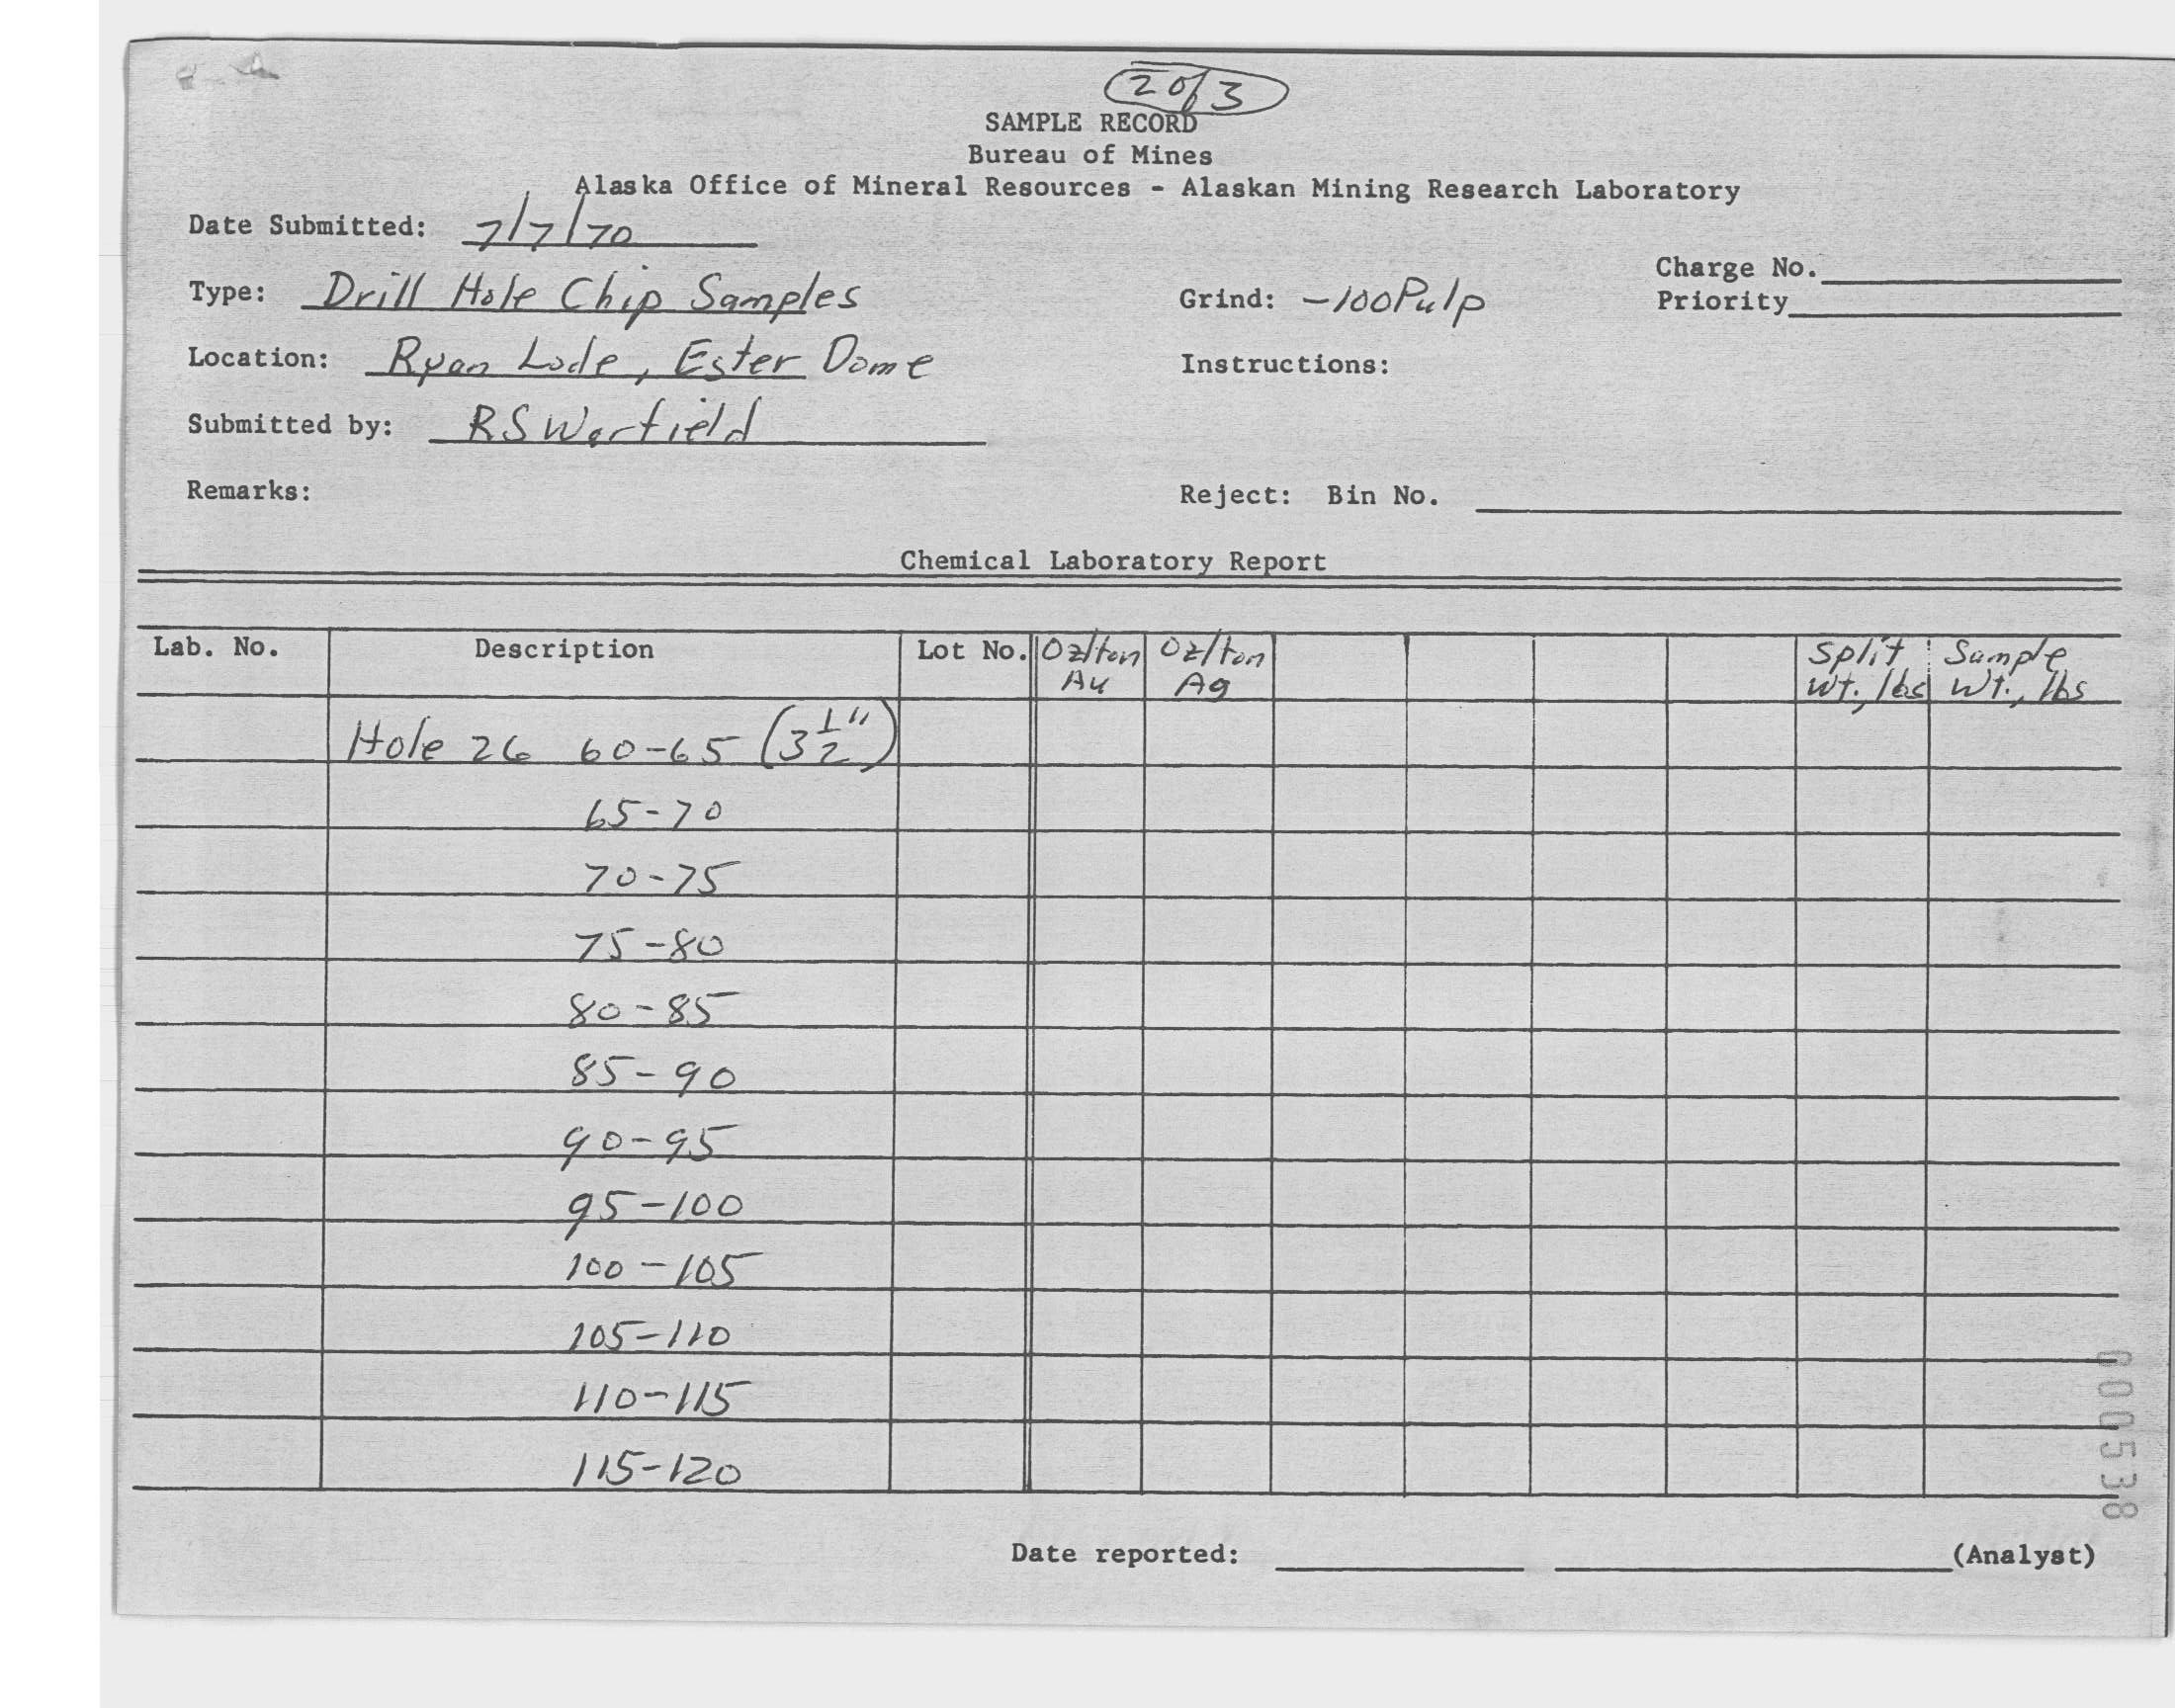 2 of 3
SAMPLE RECORD
Bureau of Mines
Alaska Office of Mineral Resources - Alaskan Mining Research Laboratory
Date Submitted: 7/7/70
Charge No.
Type: Drill Hole Chip Samples Grind: -100Pulp
Priority
Location: Ryan Lode, Ester Dome Instructions:
Submitted by: RSWarfield
Remarks: Reject: Bin No.
Chemical Laboratory Report
Lab. No. Description Lot No. Oz/ton Au Oz/ton Ag Split Wt., lbs Sample Wt., lbs
Hole 26 60-65 (3 1/2")
65-70
70-75
75-80
80-85
85-90
90-95
95-100
100-105
105-110
110-115
115-120
Date reported: (Analyst)
000538